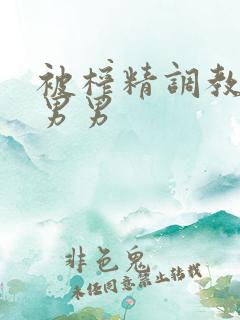 被榨精調教
男男
非色鬼
未经同意禁止转载